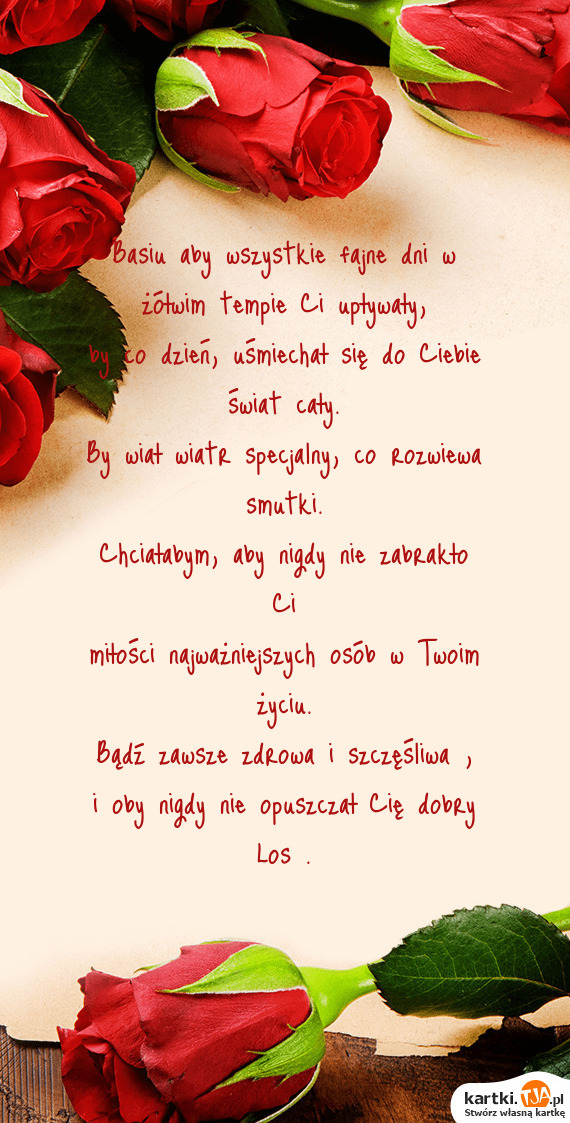 Basiu aby wszystkie fajne dni w
żółwim tempie Ci upływały,
by co dzień, uśmiechał się do Ciebie
świat cały.
By wiał wiatr specjalny, co rozwiewa
smutki.
Chciałabym, aby nigdy nie zabrakło
Ci
miłości najważniejszych osób w Twoim
życiu.
Bądź zawsze zdrowa i szczęśliwa ,
i oby nigdy nie opuszczał Cię dobry
Los .
kartki.TJA.pl
Stwórz własną kartkę